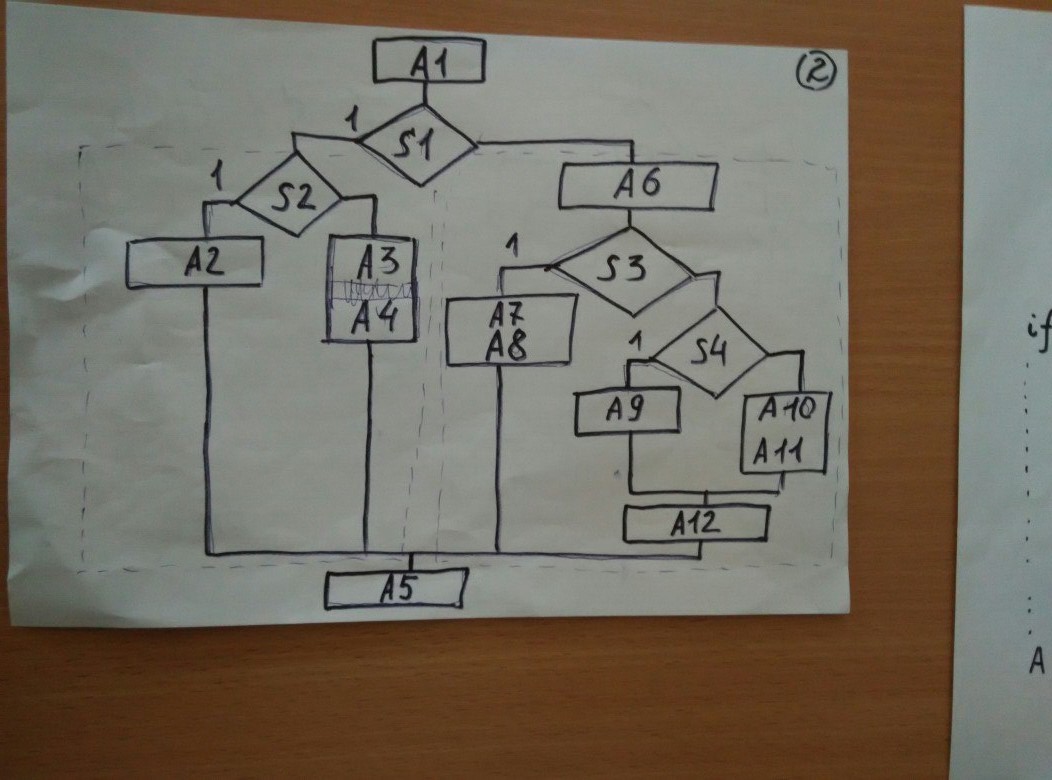 A1
2
1
S1
1
S2
A6
A2
A3
A4
1
S3
A7
A8
1
S4
A9
A10
A11
A12
A5
if
A